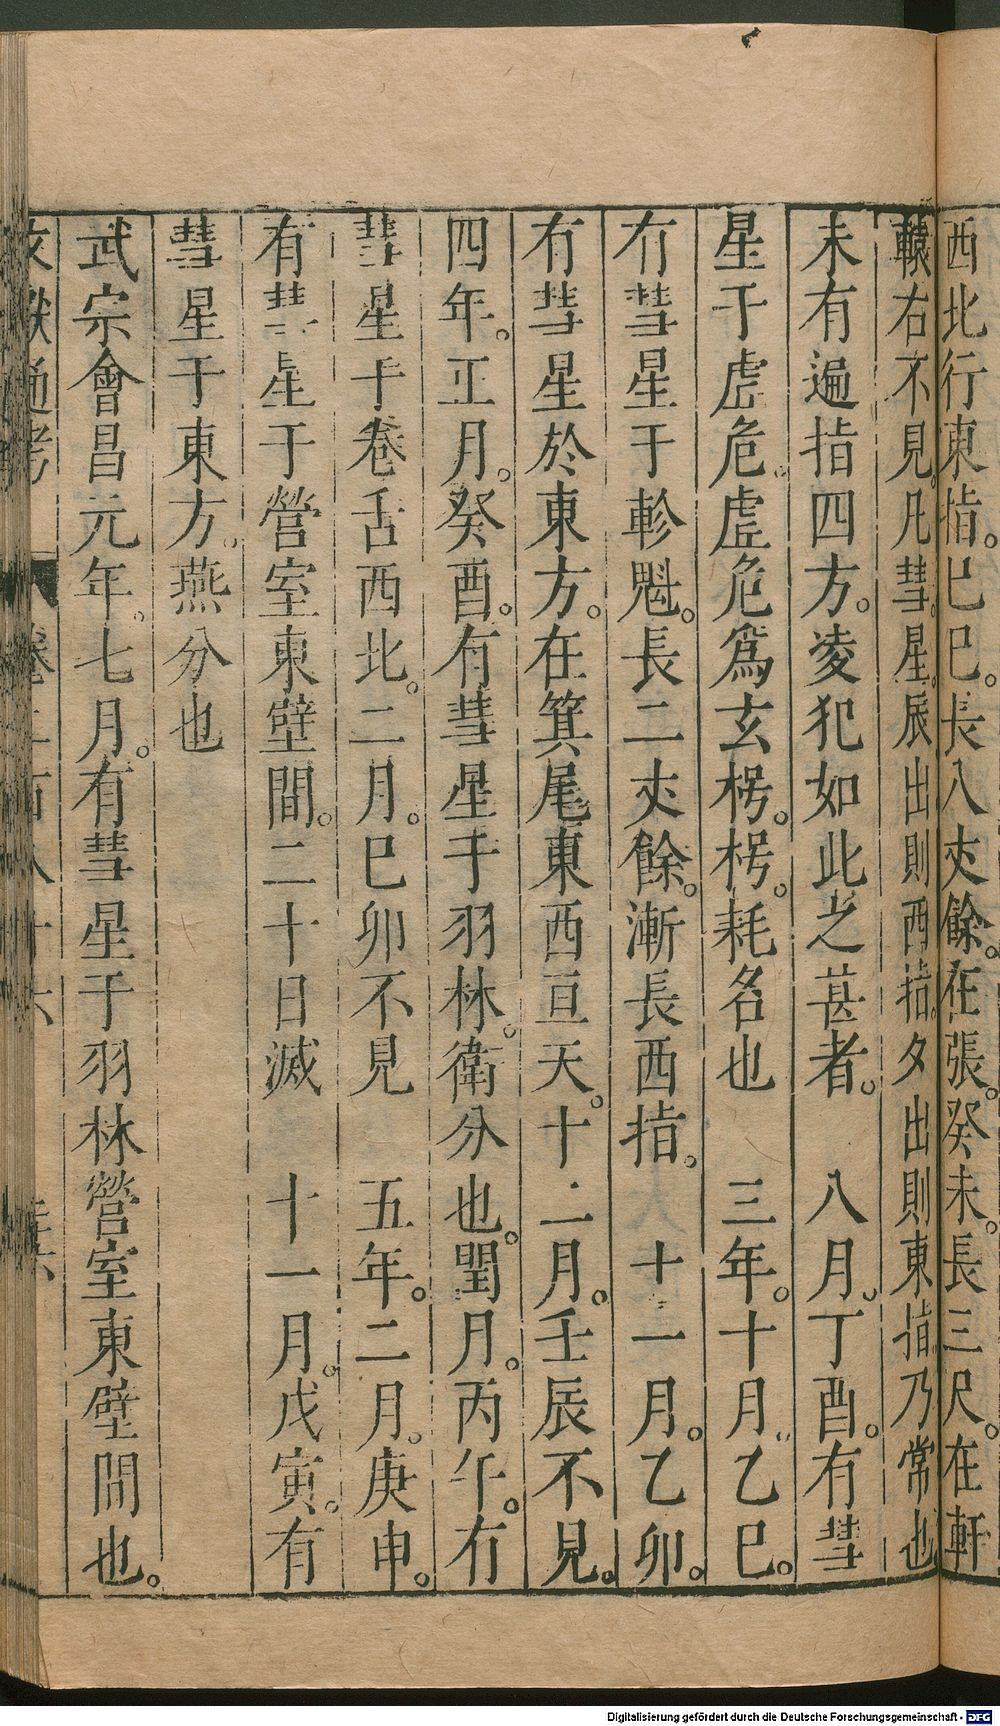 西北行東指。巳巳。長八丈餘。在張。癸未。長三尺。在軒
轅右不見。凡彗。星。辰出則西指。夕出則東指。乃常也
未有遍指四方。凌犯如此之甚者。　八月。丁酉。有彗
星于虛危。虛危爲玄枵。枵。耗名也　三年。十月。乙巳。
有彗星于軫魁。長二丈餘。漸長西指。　十一月。乙卯。
有彗星於東方。在箕尾東西亘天。十二月。壬辰不見。
四年。正月。癸酉。有彗星于羽林。衛分也。閏月。丙午。有
彗星于卷舌西北。二月。巳卯不見　五年。二月。庚申。
有彗星于營室東壁間。二十日滅　十一月。戊寅。有
彗星于東方。燕分也
武宗會昌元年。七月。有彗星于羽林營室東壁間也。
文獻通考　卷二百八十六
Digitalisierung gefördert durch die Deutsche Forschungsgemeinschaft - DFG